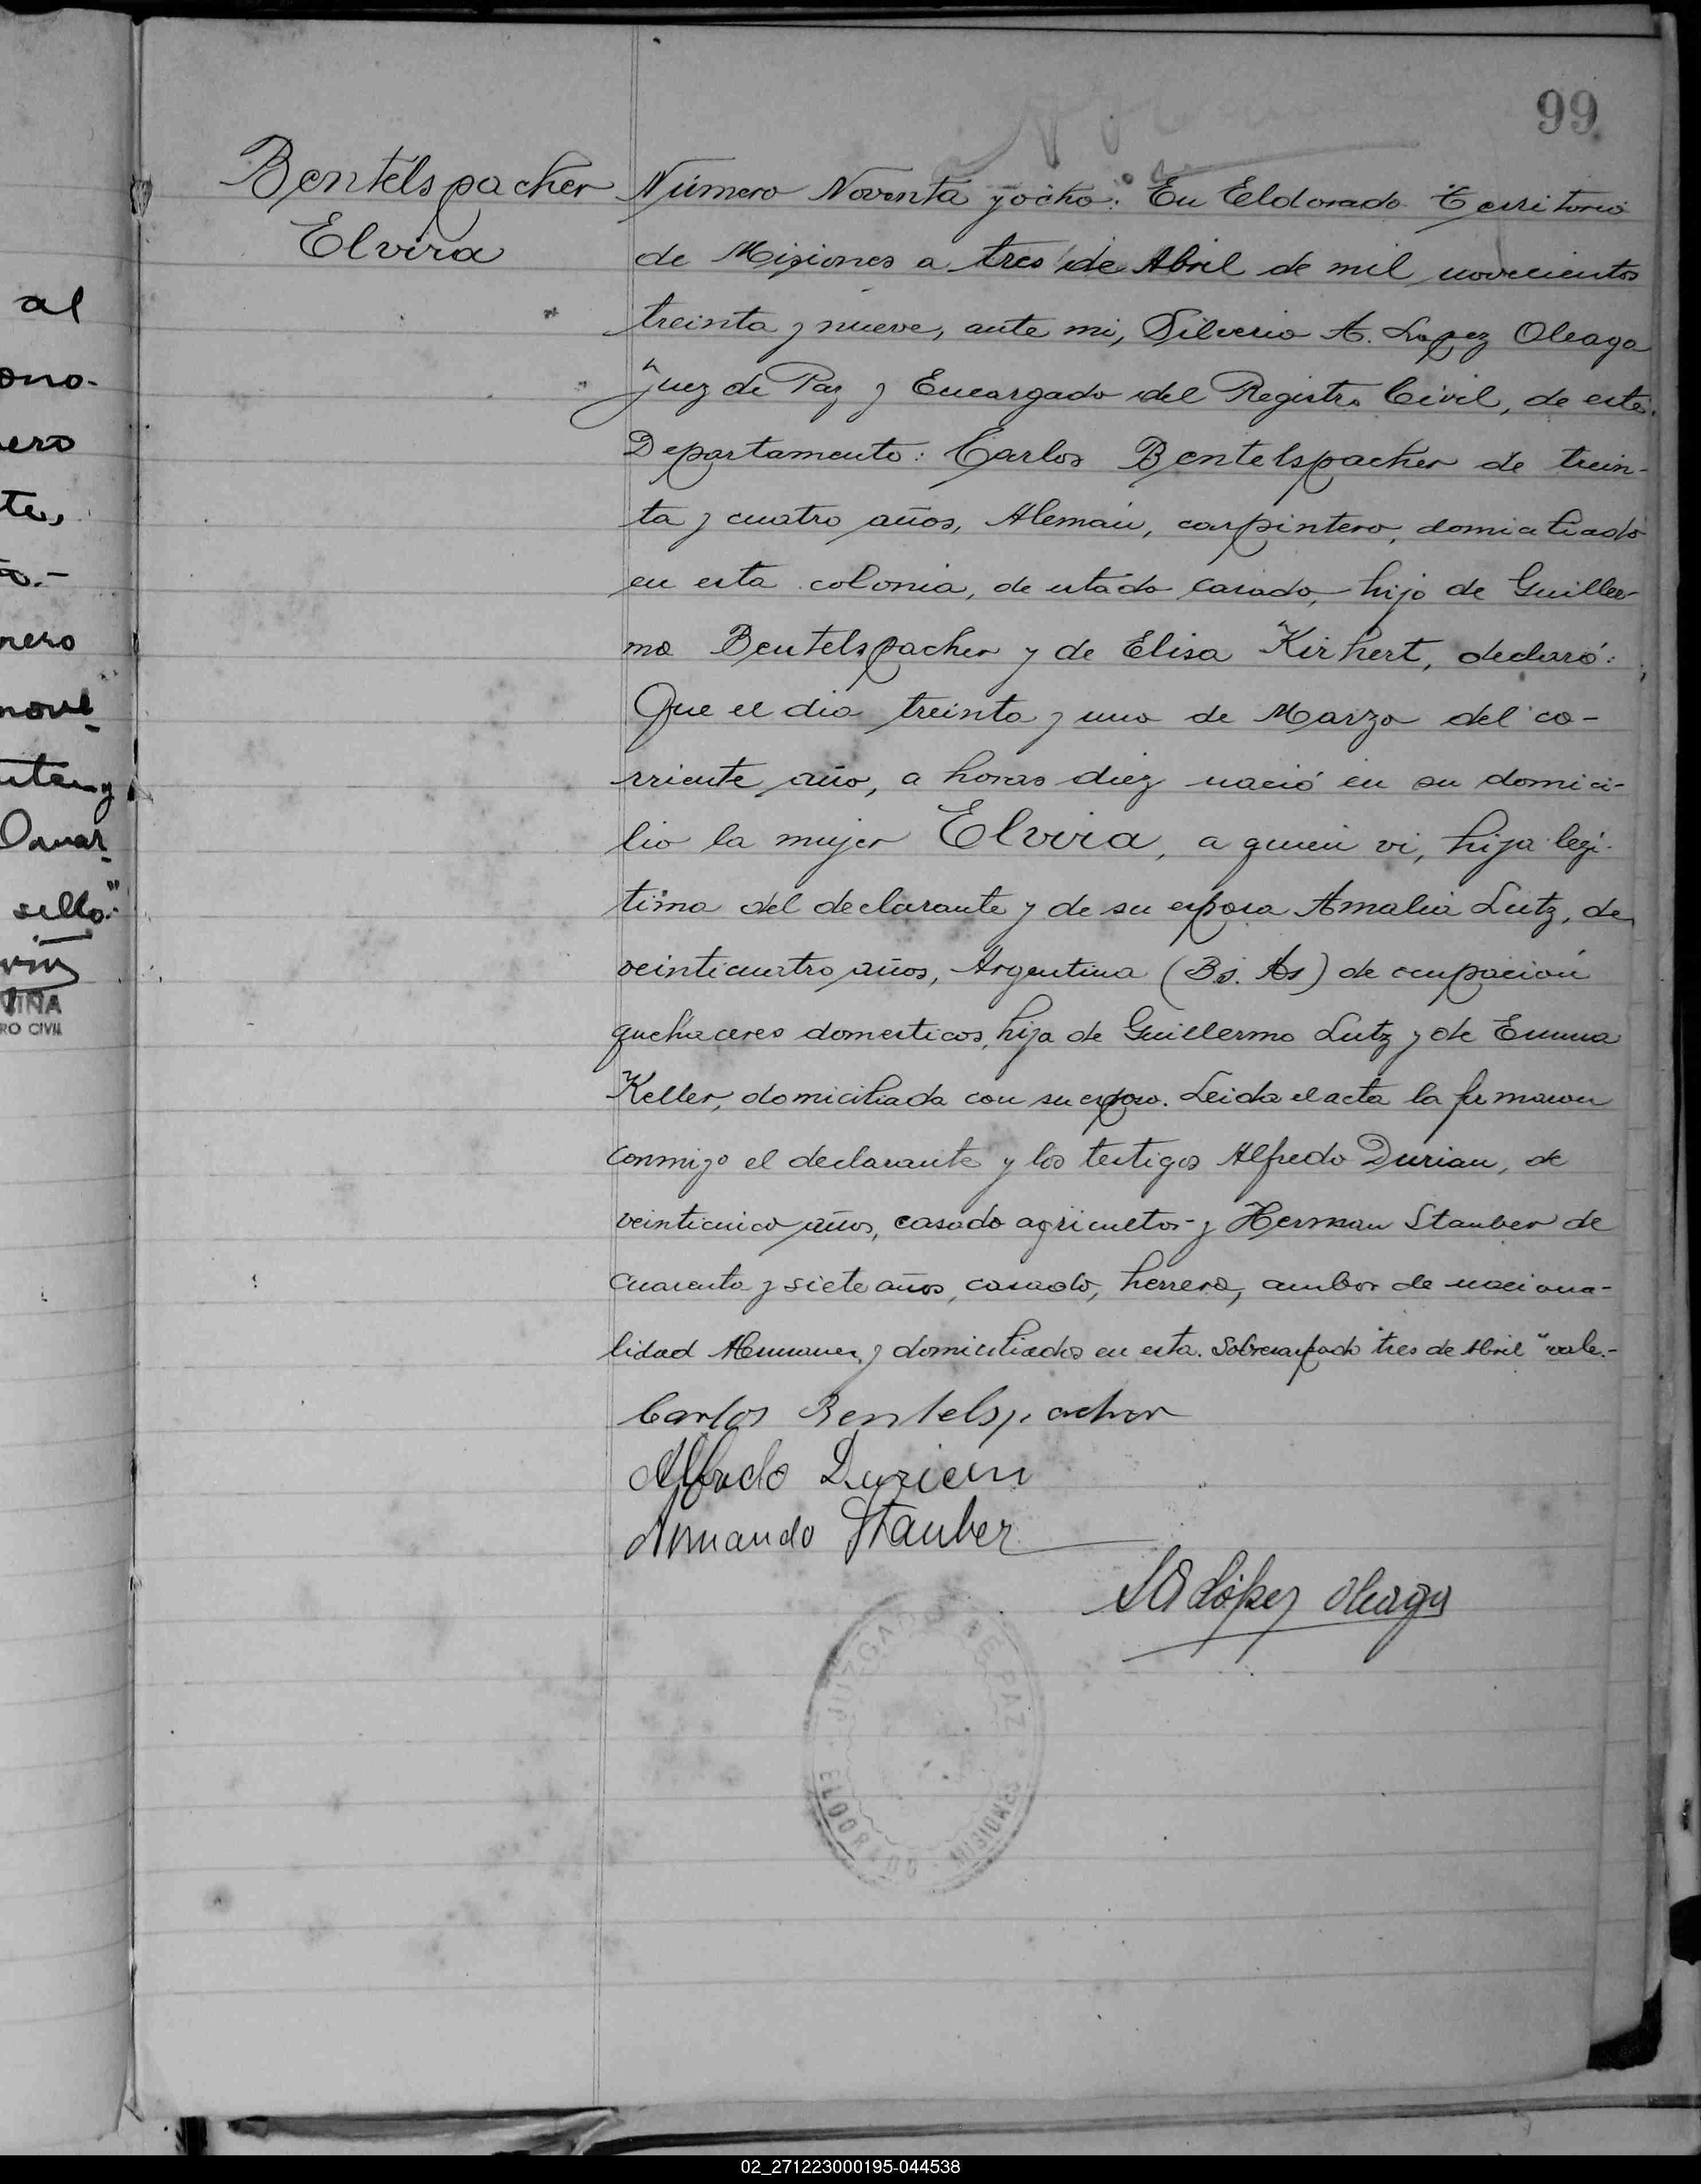 99
Bentelspacher
Elvira
Número Noventa y ocho: En Eldorado Territorio
de Misiones a tres de Abril de mil novecientos
treinta y nueve, ante mi, Silverio A. Lopez Oleaga
Juez de Paz y Encargado del Registro Civil, de este
Departamento: Carlos Bentelspacher de trein-
ta y cuatro años, Alemán, carpintero, domiciliado
en esta colonia, de estado casado, hijo de Guiller-
mo Bentelspacher y de Elisa Kirhert, declaró:
Que el dia treinta y uno de Marzo del co-
rriente año, a horas diez nació en su domici-
lio la mujer Elvira, a quien vi, hija legi-
tima del declarante y de su esposa Amalia Lutz, de
veinticuatro años, Argentina (Bs. As) de ocupación
quehaceres domesticos, hija de Guillermo Lutz y de Emma
Keller, domiciliada con su esposo. Leida el acta la firmaron
conmigo el declarante y los testigos Alfredo Durian, de
veinticinco años, casado agricultor y Herman Stauber de
cuarenta y siete años, casado, herrero, ambos de naciona-
lidad Alemanes y domiciliados en esta. Sobreraspado "tres de Abril" vale.-
Carlos Bentelspacher
Alfredo Durian
Armando Stauber
SA López Oleaga
JUZGADO DE PAZ
ELDORADO - MISIONES
al
ono-
ero
te,
o.-
nero
nove
nte y
Omar
sello."
VIÑA
RO CIVIL
02_271223000195-044538